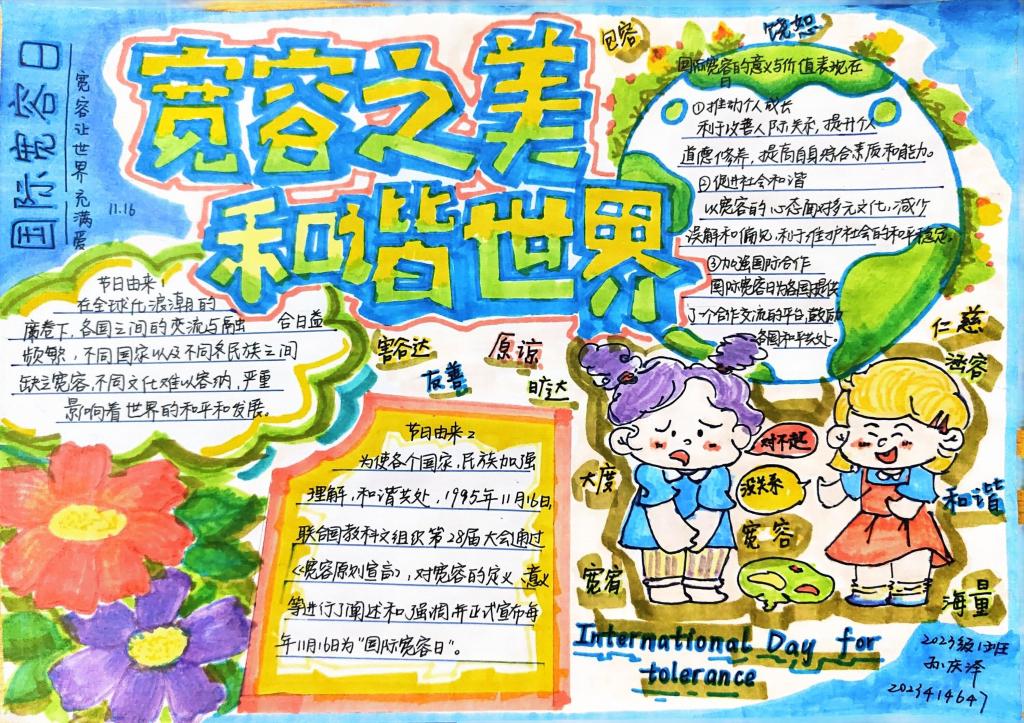 国际宽容日
宽容让世界充满爱
11.16
宽容之美
和谐世界
包容
饶恕
国际宽容日的意义与价值表现在
①推动个人成长
利于改善人际关系，提升个人
道德修养，提高自身综合素质和能力。
②促进社会和谐
以宽容的心态面对多元文化，减少
误解和偏见，利于维护社会的和平稳定。
③加强国际合作
国际宽容日为各国提供
了一个合作交流的平台，鼓励
各国和平共处。
节日由来1
在全球化浪潮的
席卷下，各国之间的交流与融合日益
频繁，不同国家以及不同各民族之间
缺乏宽容，不同文化难以容纳，严重
影响着世界的和平和发展。
豁达
原谅
友善
旷达
仁慈
涵容
节日由来2
为使各个国家，民族加强
理解，和谐共处，1995年11月16日，
联合国教科文组织第28届大会通过
《宽容原则宣言》，对宽容的定义、意义
等进行了阐述和强调并正式宣布每
年11月16日为“国际宽容日”。
对不起
没关系
大度
宽容
宽宥
和谐
海量
International Day for
tolerance
2023级1班
孙庆泽
2023414647